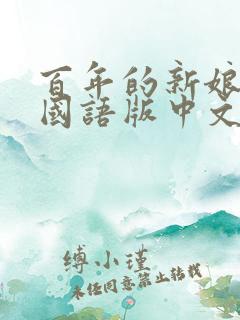 百年的新娘
國語版中文
缚小瑾
未经同意禁止转载